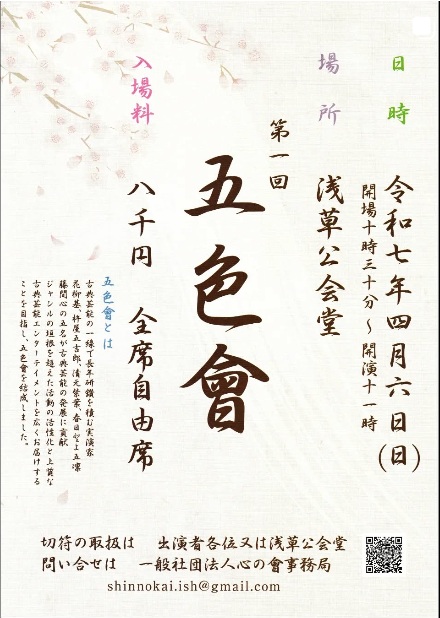 日時
令和七年四月六日(日)
開場十時三十分〜開演十一時
場所
浅草公会堂
第一回
五色會
入場料
八千円 全席自由席
五色會とは
古典芸能の一線で長年研鑽を積む実演家
花柳基、杵屋五吉郎、清元紫葉、春日とよ五凛
藤間心の五名が古典芸能の発展に貢献
ジャンルの垣根を超えた活動の活性化と上質な
古典芸能エンターテイメントを広くお届けする
ことを目指し、五色會を結成しました。
切符の取扱は 出演者各位又は浅草公会堂
問い合せは 一般社団法人心の會事務局
shinnokai.ish@gmail.com